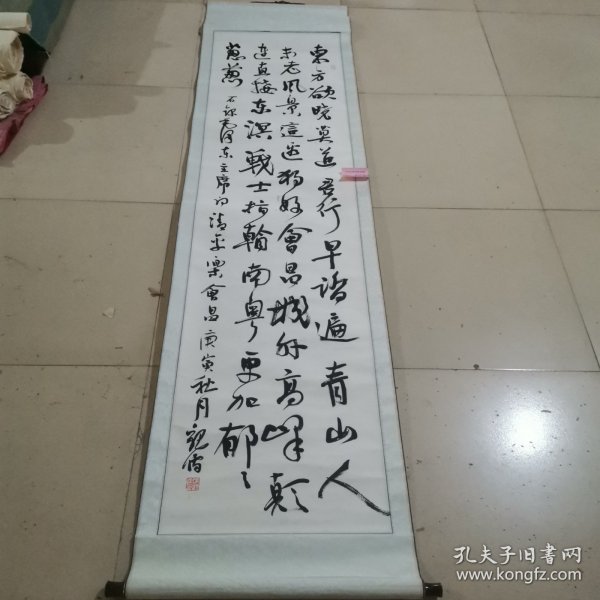 東方欲曉莫道君行早踏遍青山人
未老風景這邊獨好會昌城外高峰顛
連直接東溟戰士指看南粵更加郁郁
葱葱
毛澤東主席的清平樂會昌 庚寅秋月
孔夫子旧书网
www.kongfz.com